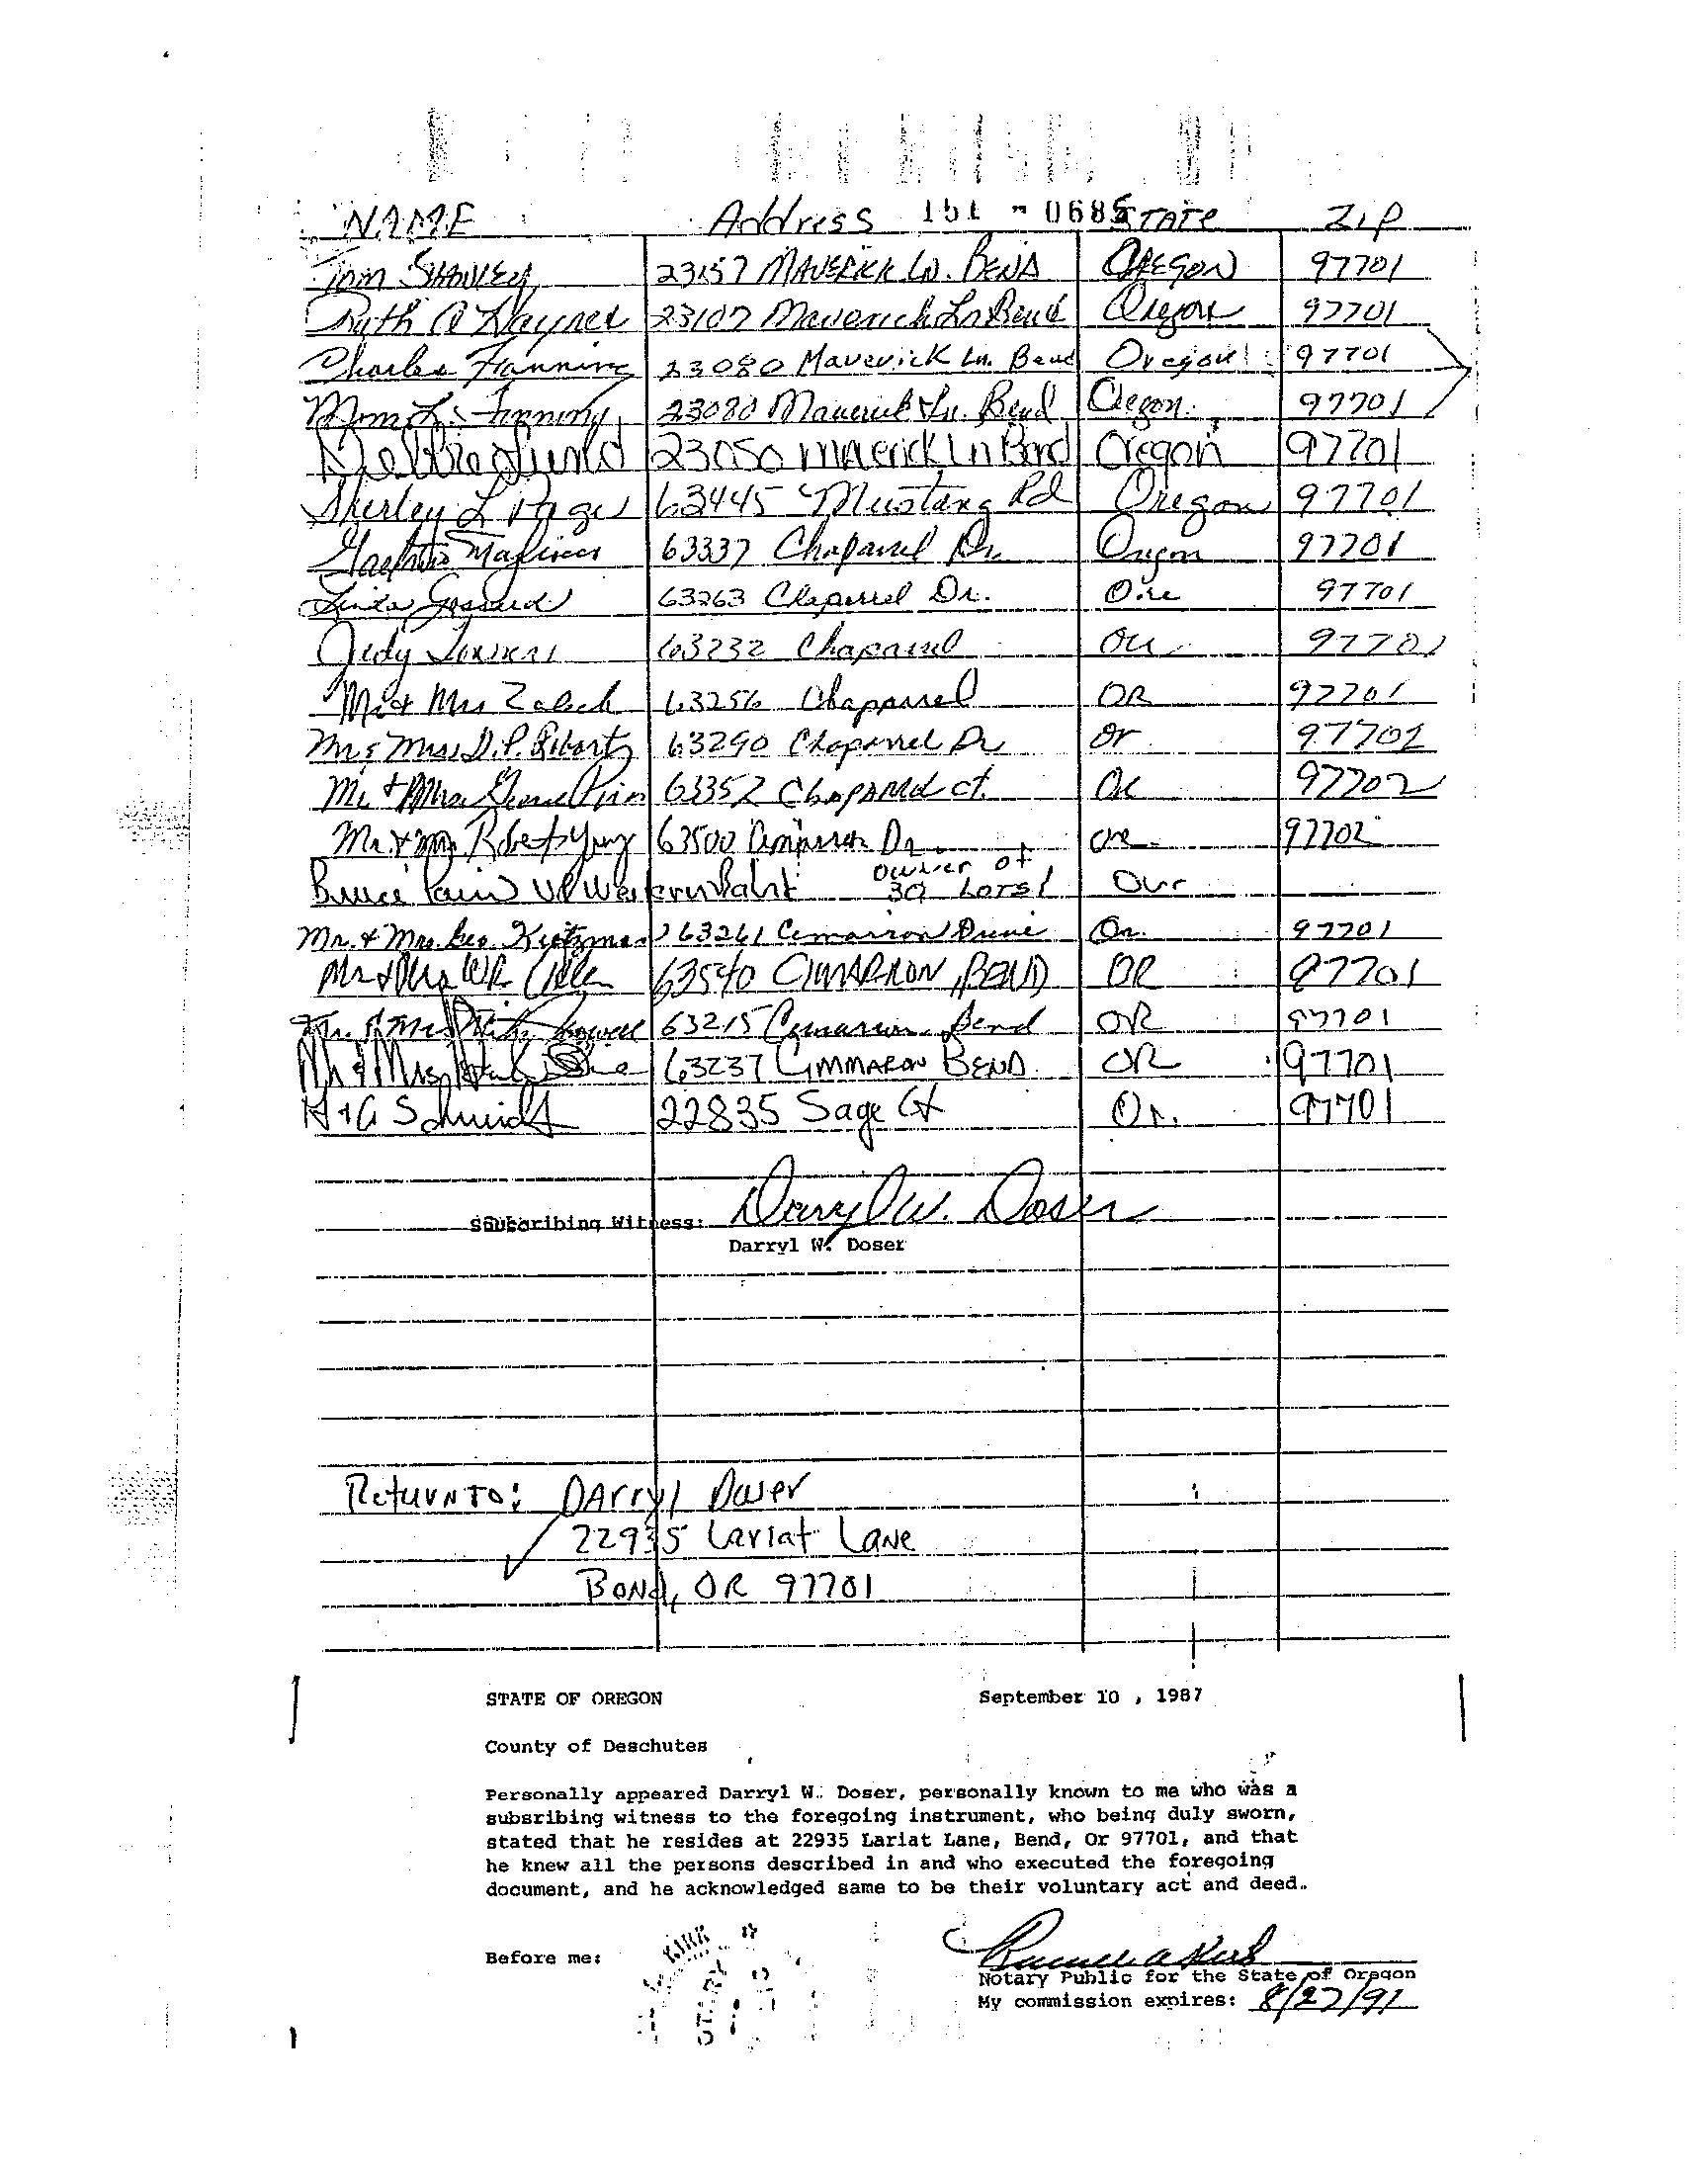 NAME Address 151 - 0685 STATE ZIP
Tom 23157 MAVERICK LN. BEND OREGON 97701
Ruth A Haynes 23107 Maverick Ln Bend Oregon 97701
Charles Fanning 23080 Maverick Ln. Bend Oregon 97701
23080 Maverick Ln. Bend Oregon 97701
Debbie Lund 23050 Maverick Ln Bend Oregon 97701
Shirley L 63445 Mustang Rd Oregon 97701
63337 Chaparrel Dr. Oregon 97701
Linda 63263 Chaparrel Dr. Ore 97701
Judy 63232 Chaparrel Or 97701
Mr & Mrs 63256 Chapparel OR 97701
Mr & Mrs. D.P. 63290 Chaparrel Dr Or 97701
Mr & Mrs. 63352 Chaparrel ct. OR 97702
Mr & Mrs Robert Young 63500 Cimarron Dr. Ore 97702
Bruce VP Western owner of
30 Lots!
Mr. & Mrs. Geo. 63261 Cimarron Drive Or. 97701
Mr & Mrs W.R. 63540 CIMARRON, BEND OR 97701
Mr. & Mrs 63215 Cimarron Bend OR 97701
Mr & Mrs 63237 CIMMARON BEND. OR 97701
H + G Schmidt 22835 Sage Ct Or. 97701
Subscribing Witness: Darryl W. Doser
Darryl W. Doser
Return TO: DArryl Doser
22935 Lariat Lane
Bend, OR 97701
STATE OF OREGON September 10 , 1987
County of Deschutes
Personally appeared Darryl W. Doser, personally known to me who was a
subsribing witness to the foregoing instrument, who being duly sworn,
stated that he resides at 22935 Lariat Lane, Bend, Or 97701, and that
he knew all the persons described in and who executed the foregoing
document, and he acknowledged same to be their voluntary act and deed.
Before me:
Notary Public for the State of Oregon
My commission expires: 8/27/91